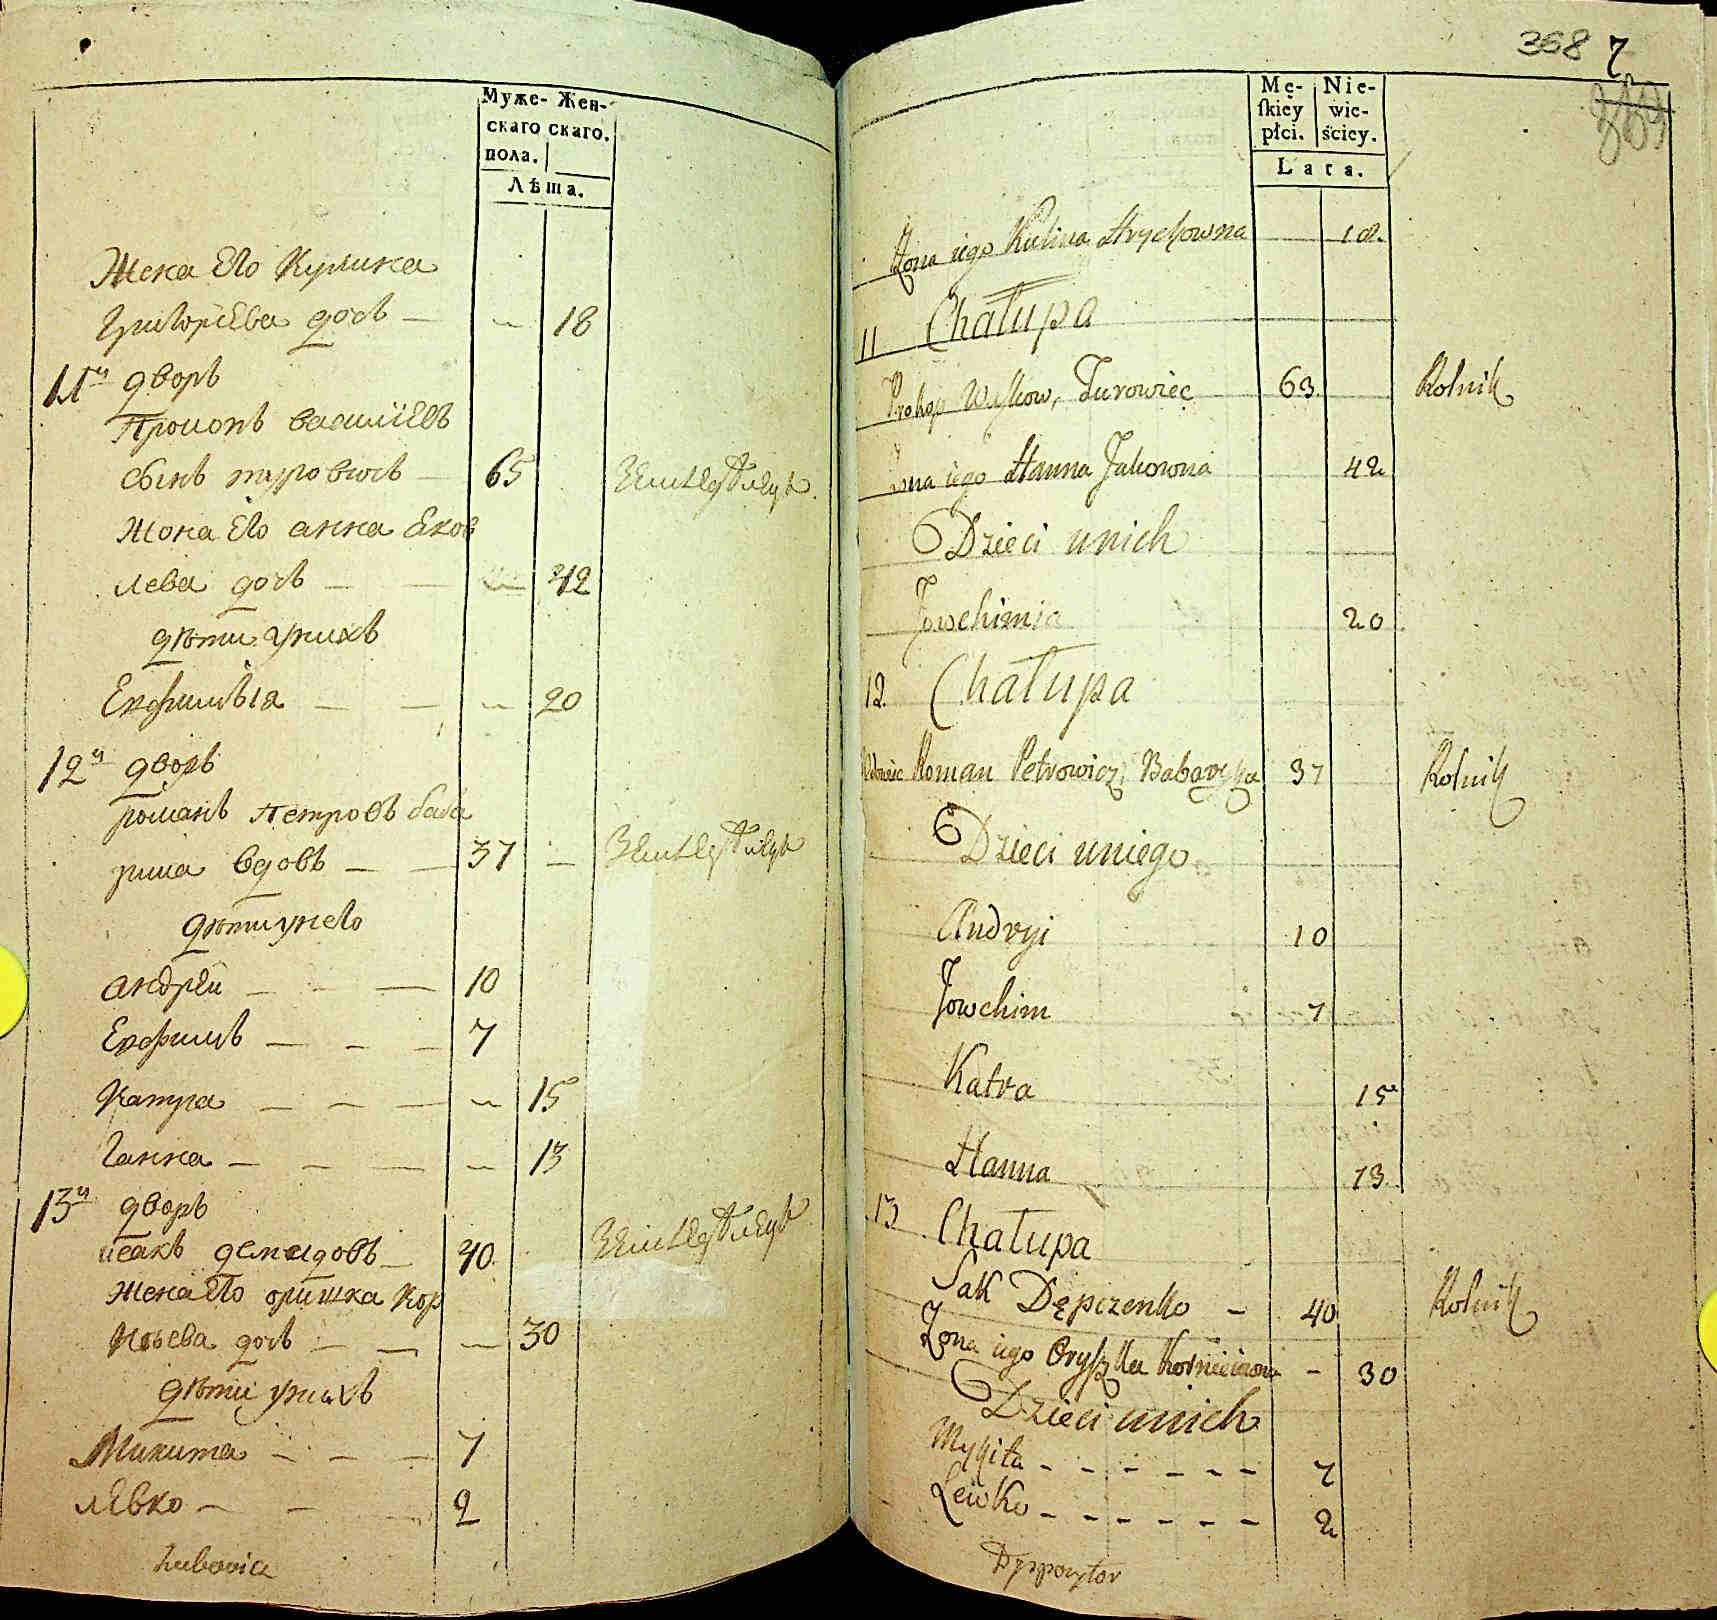 Муже- Жен-
скаго скаго.
пола.
Лѣта.
Жена Его Кулина
Григорьева дочь — 18
11й дворъ
Прокопъ василіевъ
сынъ туровецъ — 65
Жона Его анна Яков
лева дочь — — 42
дѣти унихъ
Евфимъія — — 20
12й дворъ
романъ петровъ баба
рика вдовъ — — 37 —
дѣти унего
андрей — — — 10
Евфимъ — — — 7
Катра — — — 15
Ганна — — — 13
13й дворъ
исакъ демидовъ — 40
жена Его оришка Кор
нѣева дочь — — — 30
дѣти унихъ
Микита — — — 7
лЕвко — — 2
368 7
Mę- Nie-
ſkiéy wie-
płci. ściey.
Lata.
Zona iego Kulina Hrychowna 18.
11 Chałupa
Prokop Waſkow, Turowiec 63. Rolnik
Zona iego Hanna Jakowna 42
Dzieci unich
Jowchimia 20
12. Chałupa
Wdowiec Roman Petrowicz Babaryka 37 Rolnik
Dzieci uniego
Andryi 10
Jowchim 7
Katra 15
Hanna 13.
13 Chałupa
Sak Dępczenko — 40 Rolnik
Zona iego Oryſzka — 30
Dzieci unich
Mykita - - - - - - 7
Lewko - - - - - - 2
Dyspozytor